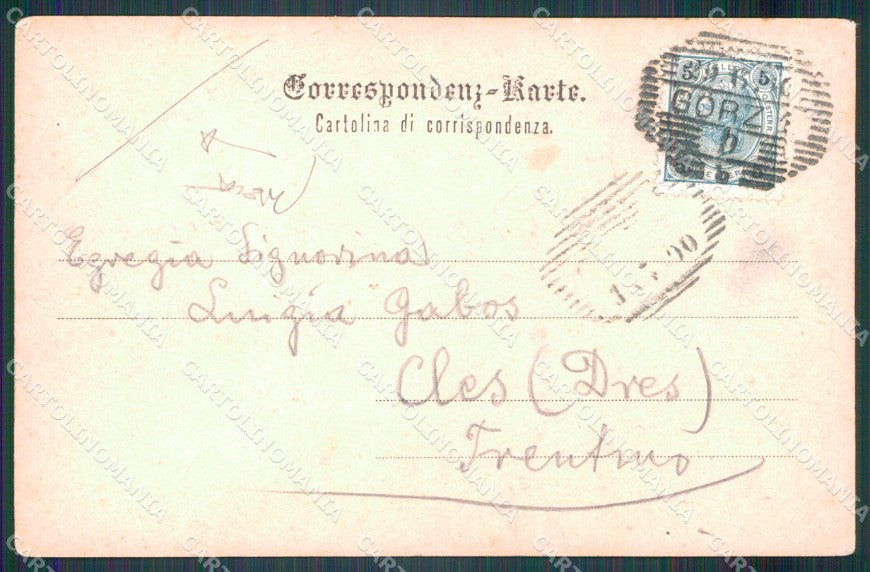 Correspondenz-Karte.
Cartolina di corrispondenza.
5 5
GÖRZ
Egregia Signorina
Luigia Gabos
Cles (Dres)
Trentino
CARTOLINOMANIA